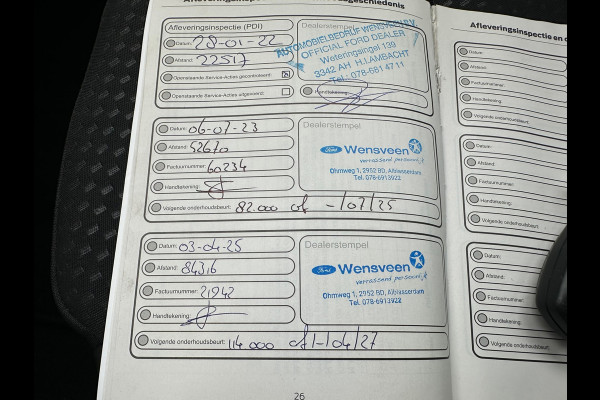 Afleveringsinspectie
geschiedenis
Afleveringsinspectie (PDI)
Datum: 28-01-22
Afstand: 22517
Openstaande Service-Acties gecontroleerd:
Openstaande Service-Acties uitgevoerd:
Dealerstempel
AUTOMOBIELBEDRIJF WENSVEEN B.V.
OFFICIAL FORD DEALER
Weteringsingel 139
3342 AH H.I.AMBACHT
Tel.: 078-681 47 11
Handtekening:
Datum: 06-07-23
Afstand: 52670
Factuurnummer: 60234
Handtekening:
Volgende onderhoudsbeurt: 82.000 of -/07/25
Dealerstempel
Ford Wensveen
verrassend persoonlijk
Ohmweg 1, 2952 BD, Alblasserdam
Tel. 078-6913922
Datum: 03-04-25
Afstand: 84316
Factuurnummer: 21942
Handtekening:
Volgende onderhoudsbeurt: 114.000 of 1-/04/27
Dealerstempel
Ford Wensveen
verrassend persoonlijk
Ohmweg 1, 2952 BD, Alblasserdam
Tel. 078-6913922
26
Afleveringsinspectie en o
Datum:
Afstand:
Factuurnummer:
Handtekening:
Volgende onderhoudsbeurt:
Datum:
Afstand:
Factuurnummer:
Handtekening:
Volgende onderhoudsbeurt:
Datum:
Afstand:
Factuurnummer:
Handtekening:
Volgende onderhoudsbeurt: